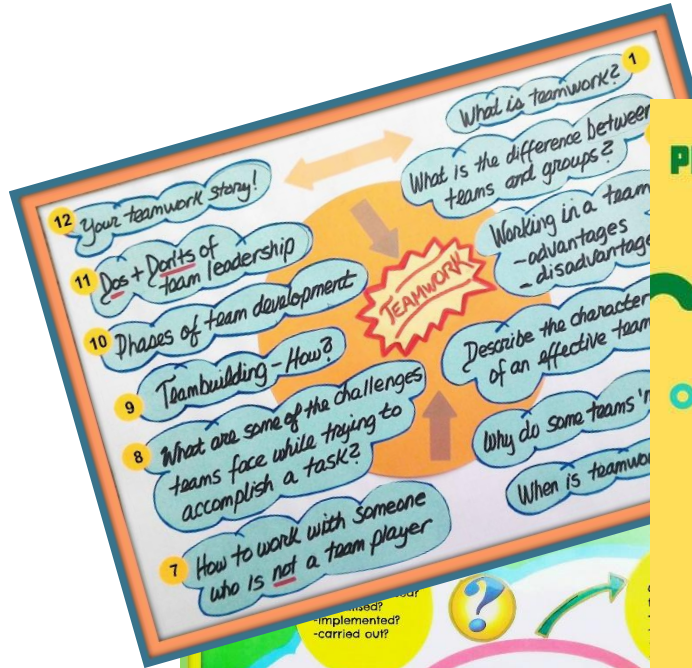 1
What is teamwork?
What is the difference between
teams and groups?
Working in a team
-advantages
-disadvantage
Describe the character
of an effective team
Why do some teams
When is
TEAMWORK
12
Your teamwork story!
11
Dos + Don'ts of
team leadership
10
Phases of team development
9
Teambuilding - How?
8
What are some of the challenges
teams face while trying to
accomplish a task?
7
How to work with someone
who is not a team player
-implemented?
-carried out?
?